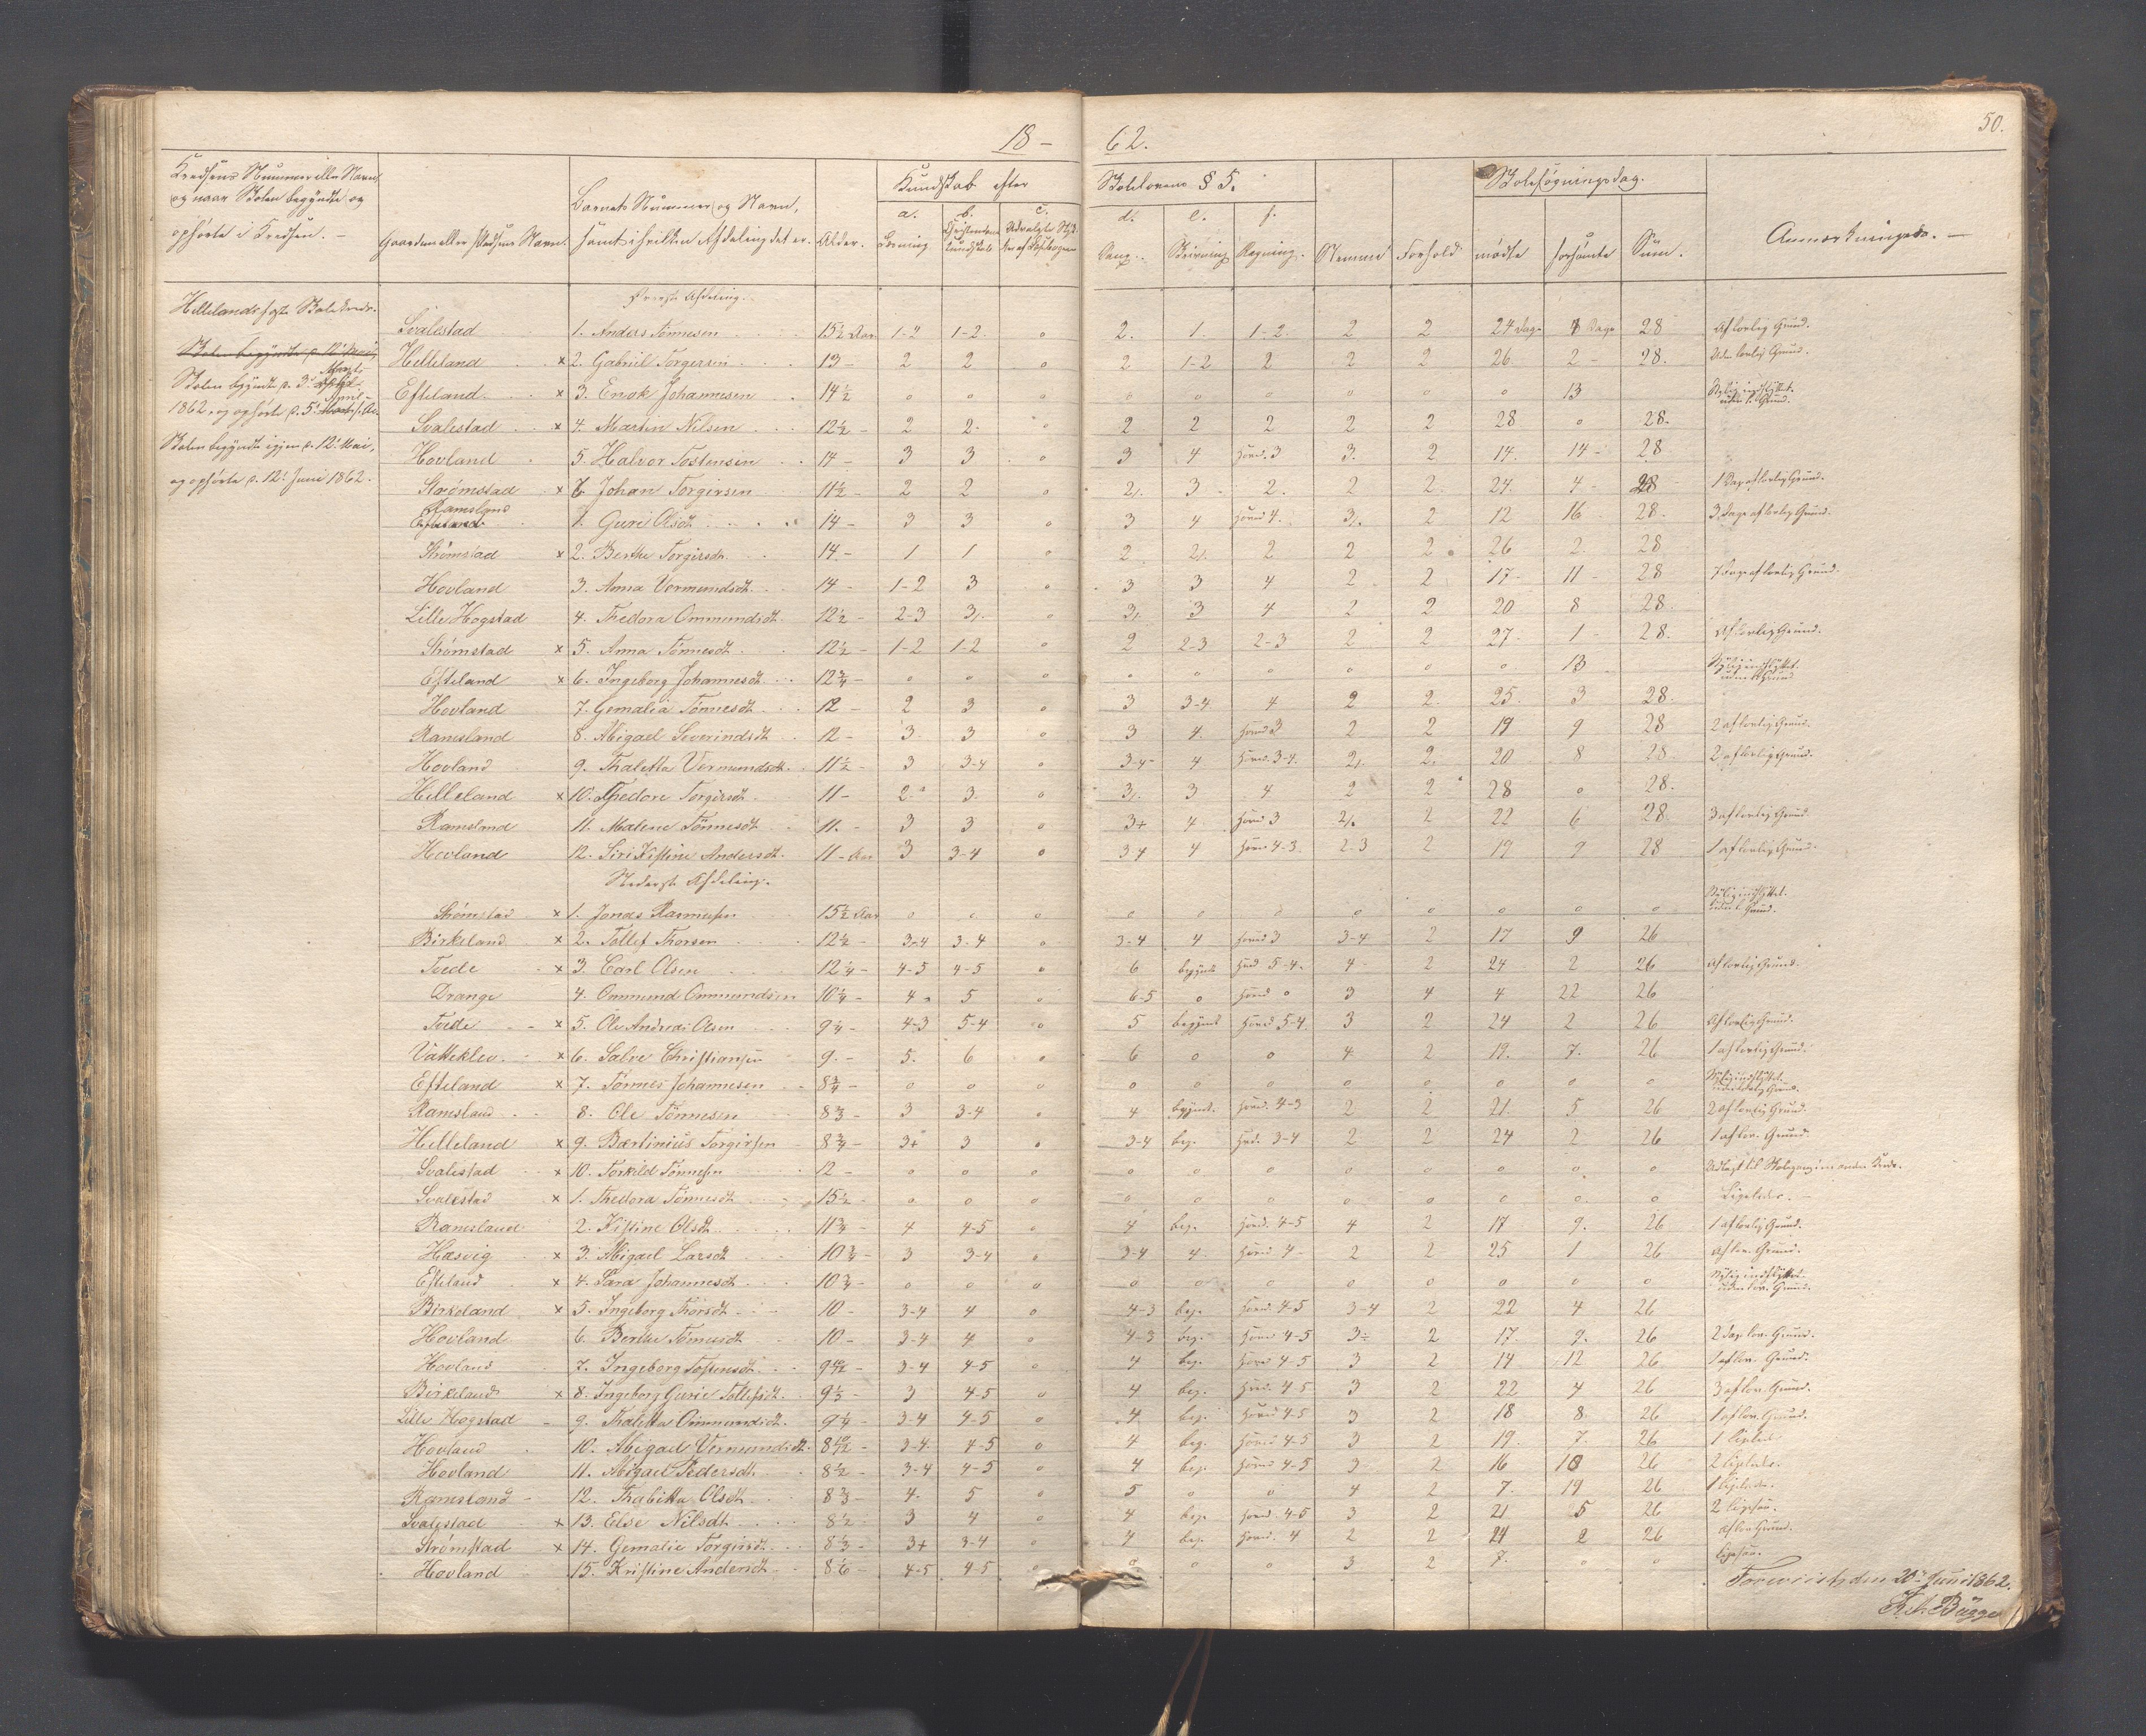 18-62.
50.
Kredsens Nummer eller Navn, og naar Skolen begyndte og ophørte i Kredsen. -
Gaardens eller Pladsens Navn.
Barnets Nummer og Navn, samt i hvilken Afdeling det er.
Alder.
Kundskab efter Skolelovens § 5.
a. Læsning
b. Christendomskundskab
c. Udvalgte Stykker af Læsebogen
d. Sang.
e. Skrivning
f. Regning.
Nemme
Forhold
Skolesøgningsdage.
mødte
forsømte
Sum.
Anmærkninger. -
Hellelands faste Skolekreds.
Skolen begyndte d. 3
1862, og ophørte d. 5. April
Skolen begyndte igjen d. 12. Mai,
og ophørte d. 12. Juni 1862.
Øverste Afdeling.
Svalestad 1. Anders Tønnesen 15½ Aar 1-2 1-2 0 2. 1. 1-2. 2 2 24 Dage 4 Dage 28 Af lovlig Grund.
Helleland × 2. Gabriel Torgersen 13 - 2 2 0 2 1-2 2 2 2 26 2 - 28. Uden lovlig Grund.
Efteland × 3. Enok Johannesen 14½ 0 0 0 0 0 0 0 0 0 13 Nylig indflyttet. uden l. Grund.
Svalestad × 4. Martin Nilsen 12½ - 2 2. 0 2 2 2 2 2 28 0 28.
Hovland 5. Halvor Tostensen 14 - 3 3 0 3 4 Hoved. 3 3. 2 14. 14 - 28
Strømstad × 6. Johan Torgersen 11½ - 2 2 0 2/. 3 - 2. 2 2. 24. 4 - 28 1 Dag af lovlig Grund.
Ramsland 1. Guri Olsdt. 14 - 3 3 0 3 4 Hoved 4. 3/. 2 12 16 28. 3 Dage af lovlig Grund.
Strømstad × 2. Berthe Torgersdt. 14 - 1 1 0 2 2/. 2 2 2 26 2. 28
Hovland 3. Anna Vermundsdt. 14 - 1-2 3 0 3 3 4 2 2 17 - 11 - 28 7 Dage af lovlig Grund.
Lille Hogstad 4. Thedora Ommundsdt. 12½ - 2-3 3/. 0 3/. 3 4 2 2 20 8 28.
Strømstad × 5. Anna Tønnesdt. 12½ - 1-2 1-2 0 2 2-3 2-3 2 2 27. 1 - 28. Af lovlig Grund.
Efteland × 6. Ingeborg Johannesdt. 12¾ - 0 0 0 0 0 0 0 0 0 13 Nylig indflyttet. uden l. Grund
Hovland 7. Gemalia Tønnesdt. 12 - 2 3 0 3 3-4 4 2 2. 25. 3 28.
Ramsland 8. Abigael Severindsdt. 12 - 3 3 0 3 4. Hoved 3 2 2 19 9 28 2 af lovlig Grund.
Hovland 9. Thaletta Vermundsdt. 11½ - 3 3-4 0 3-4- 4 Hoved. 3-4. 2/. 2. 20 8 28. 2 af lovlig Grund.
Helleland × 10. Thedore Torgersdt. 11 - 2. 3. 0 3/. 3 4 2 2 28 0 28.
Ramsland 11. Malene Tönnesdt. 11. - 3 3 0 3+ 4 Hoved 3 2/. 2 22 6 28. 3 af lovlig Grund
Hovland 12. Siri Kistine Andersdt. 11 - Aar 3 3-4 0 3-4 4 Hoved 4-3. 2-3 2 19 9 28 1 af lovlig Grund.
Nederste Afdeling.
Strømstad × 1. Jonas Rasmussen 15½ Aar 0 0 0 0 0 0 0 0 0 0 0 Nylig indflyttet. uden l. Grund.
Birkeland × 2. Tollef Thorsen 12½ - 3-4 3-4 0 3-4 4 Hoved 3 3-4 2 17 9 26
Tvede × 3. Carl Olsen 12¼ - 4-5 4-5 0 6 begynd. Hoved 5-4. 4 - 2 24 2 26 Af lovlig Grund.
Drange 4. Ommund Ommundsen 10¼ - 4 5 0 6-5 0 Hoved 0 3 4 4 22 26
Tvede × 5. Ole Andreas Olsen 9¼ - 4-3 5-4 0 5 begynd Hoved. 5-4 3 2 24 2 26 Af lovlig Grund.
Vatteklev. × 6. Salve Christiansen 9. - 5. 6 0 6 0 0 4 2 19. 7. 26 1 af lovlig Grund.
Efteland × 7. Tønnes Johannesen 8¾ - 0 0 0 0 0 0 0 0 0 0 0 Nylig indflyttet uden lovlig Grund.
Ramsland 8. Ole Tönnesen 8⅔ - 3 3-4 0 4 begynd. Hoved. 4-3 2 2 21. 5 26 2 af lovlig Grund.
Helleland × 9. Bertinius Torgersen 8¾ - 3+ 3 0 3-4 beg. Hoved. 3-4 2 2 24 2 26 1 af lov. Grund.
Svalestad × 10. Torkild Tønnesen 12 - 0 0 0 0 0 0 0 0 0 0 0 Udlagt til Skolegang i en anden Kreds.
Svalestad × 1. Thedora Tønnesdt. 15½ - 0 0 0 0 0 0 0 0 0 0. 0 Ligeledes. -
Ramsland 2. Kistine Olsdt. 11¾ - 4 4-5 0 4 beg. Hoved. 4-5 4 2 17 9. 26 1 af lovlig Grund.
Hæsvig × 3. Abigael Larsdt. 10¾ - 3 3-4 0 3-4 4. Hoved 4 - 2 2 25 1 26 af lov. Grund.
Efteland × 4. Sara Johannesdt. 10¾ - 0 0 0 0 0 0 0 0 0 0 0 Nylig indflyttet uden lov. Grund.
Birkeland × 5. Ingeborg Thorsdt. 10 - 3-4 4 0 4-3 beg. Hoved. 4-5 3-4 2 22 4 26
Hovland 6. Berthe Tønnesdt. 10 - 3-4 4 0 4-3 beg. Hoved 4-5 3÷ 2 17 9. 26 2 Dag. lov. Grund.
Hovland 7. Ingeborg Tostensdt. 9 10/12 - 3-4 4-5 0 4 beg. Hoved 4-5 3 2 14 12 26 1 af lov. Grund.
Birkeland × 8. Ingeborg Gurie Tollefsdt. 9⅓ - 3 4-5 0 4 beg. Hoved. 4-5 3 2 22 4 26 3 af lov. Grund.
Lille Hogstad 9. Thaletta Ommundsdt. 9¼ - 3-4 4-5 0 4 beg. Hoved 4-5 3 2 18 8 26 1 af lov. Grund.
Hovland 10. Abigael Vermundsdt. 8 10/12 - 3-4 4-5 0 4 beg. Hoved 4-5 3 2 19. 7. 26 1 ligeledes
Hovland 11. Abigael Pedersdt. 8½ - 3-4 4-5 0 4 beg. Hoved 4-5 3 2 16 10 26 2 ligeledes.
Ramsland - 12. Thabitta Olsdt. 8⅔ - 4. 5 0 5 0 0 4 2 7. 19 26 1 ligeledes.
Svalestad × 13. Else Nilsdt. 8½ - 3 4 0 4 beg. Hoved. 4-5 3 2 21 5 26 2 ligesaa.
Strømstad × 14. Gemalie Torgersdt. 8⅓ - 3+ 3-4 0 4 beg. Hoved. 4 2 2 24 2 26 af lov Grund.
Hovland 15. Kristine Andersdt. 8 1/6 - 4-5 4-5 0 0 0 0 3 2 7. 0 0 ligesaa.
Foreviist den 20de Juni 1862.
Bugge